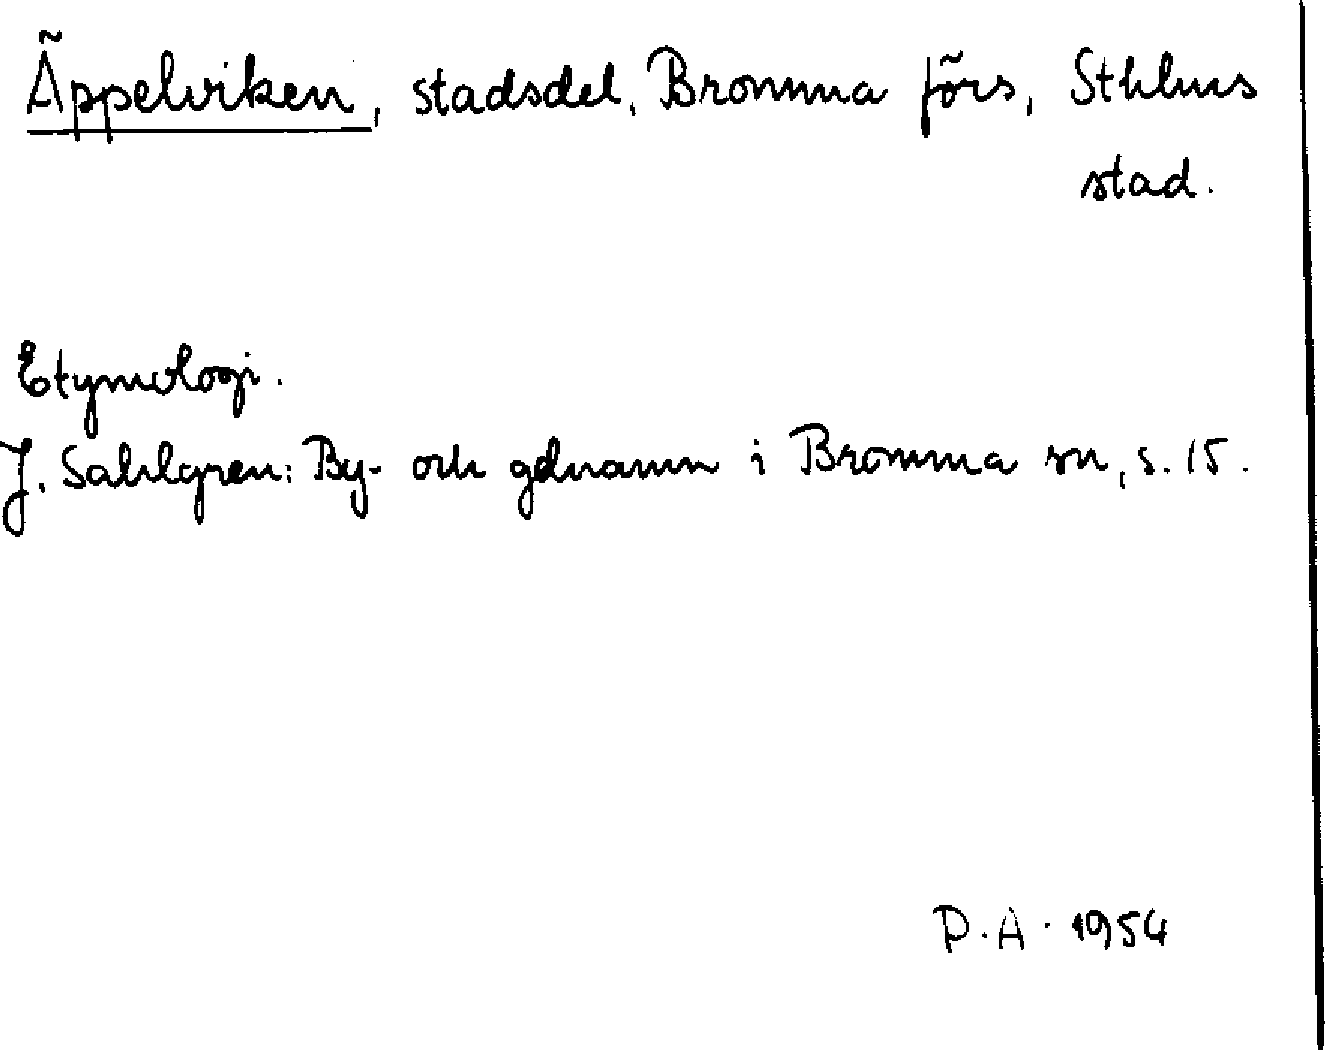 Äppelviken, stadsdel, Bromma förs, Sthlms
stad.
Etymologi.
J. Sahlgren: By- och gdnamn i Bromma sn, s. 15.
P.A. 1954